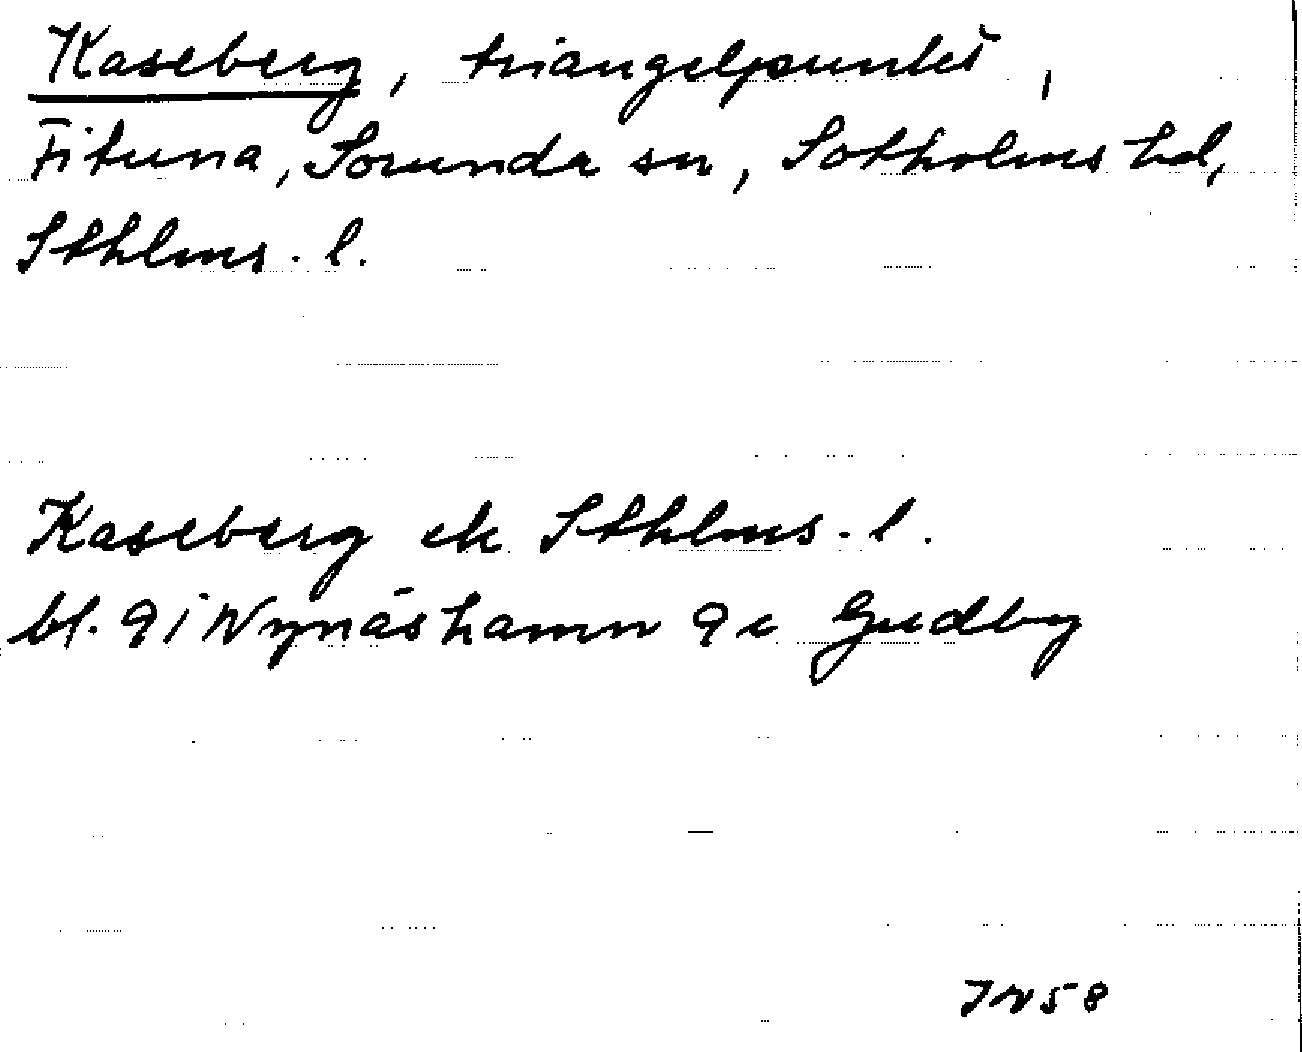 Kaseberg, triangelpunkt,
Fituna, Sorunda sn, Sotholms hd,
Sthlms. l.
Kaseberg ek Sthlms. l.
bl. 9 i Nynäshamn 9 c Gudby